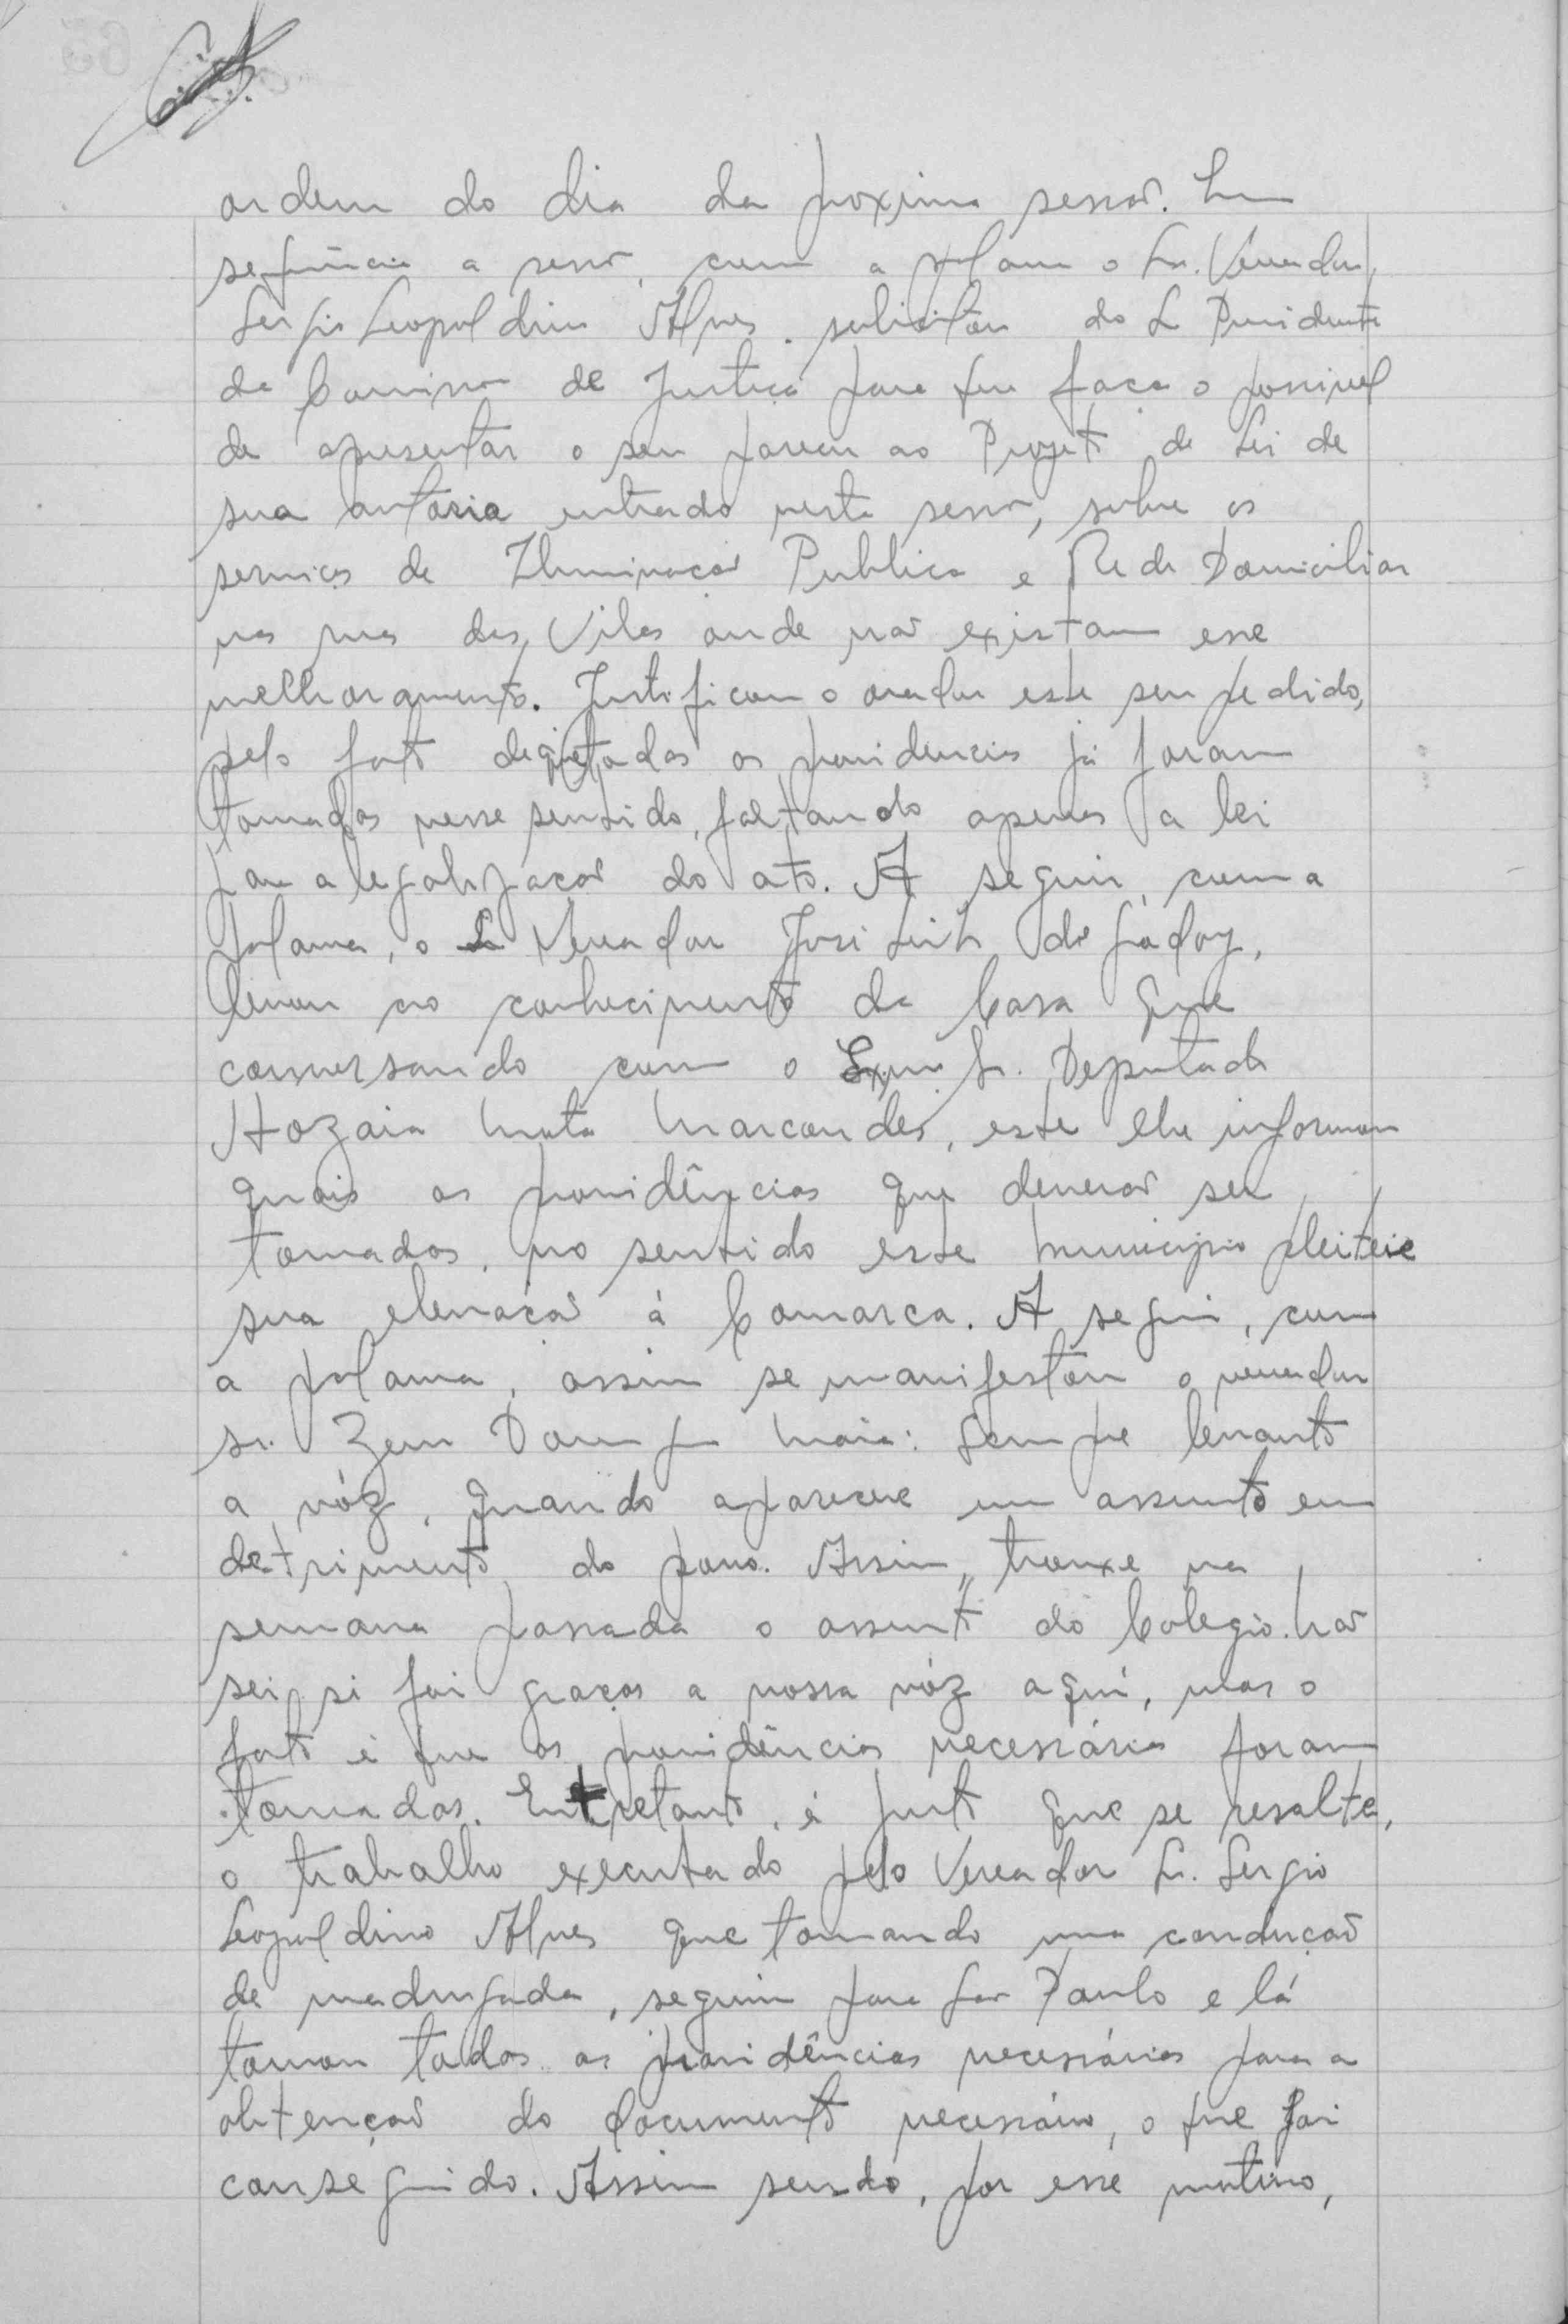 ordem do dia da proxima sessão. Em
sequência a sessão, com a palavra o Sr. Vereador,
Sergio Leopoldino Alves, solicitou do Sr Presidente
da Comissão de Justiça para que faça o possivel
de apresentar o seu parecer ao Projeto de Lei de
sua autoria entrado nesta sessão, sobre os
serviços de Iluminação Publica e Rede Domiciliar
nas ruas das Vilas onde não existam esse
melhoramento. Justificou o orador este seu pedido,
pelo fato de que todas as providencias já foram
tomadas nesse sentido, faltando apenas a lei
para a legalização do ato. A seguir, com a
palavra, o Sr Vereador José Leite de Godoy,
levou ao conhecimento da Casa que
conversando com o Exmo Sr. Deputado
Hozair Mota Marcondes, este lhe informou
quais as providências que deverão ser
tomadas, no sentido este municipio pleiteie
sua elevação á Comarca. A seguir, com
a palavra, assim se manifestou o vereador
sr. Maia: Sempre levanto
a vóz, quando aparece um assunto em
detrimento do povo. Assim, trouxe na
semana passada o assunto do Colegio. Não
sei si foi graças a nossa vóz aqui, mas o
fato é que as providências necessárias foram
tomadas. Entretanto, é justo que se resalte,
o trabalho executado pelo Vereador Sr. Sergio
Leopoldino Alves que tomando uma condução
de madrugada, seguiu para São Paulo e lá
tomou todas as providências necessárias para a
obtenção do documento necessário, o que foi
conseguido. Assim sendo, por esse motivo,